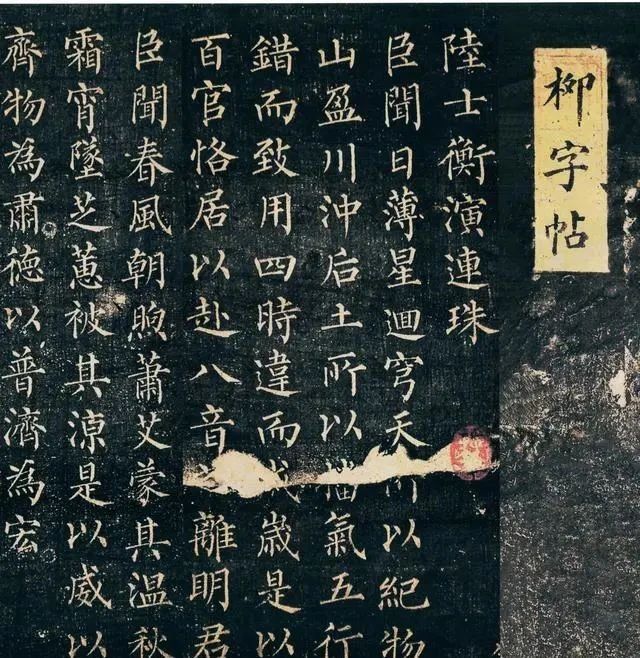 柳字帖
陸士衡演連珠
臣聞日薄星迴穹天所以紀物
山盈川沖后土所以播氣五行
錯而致用四時違而成歲是以
百官恪居以赴八音離明君
臣聞春風朝煦蕭艾蒙其温秋
霜宵墜芝蕙被其涼是以威以
齊物為肅德以普濟為宏